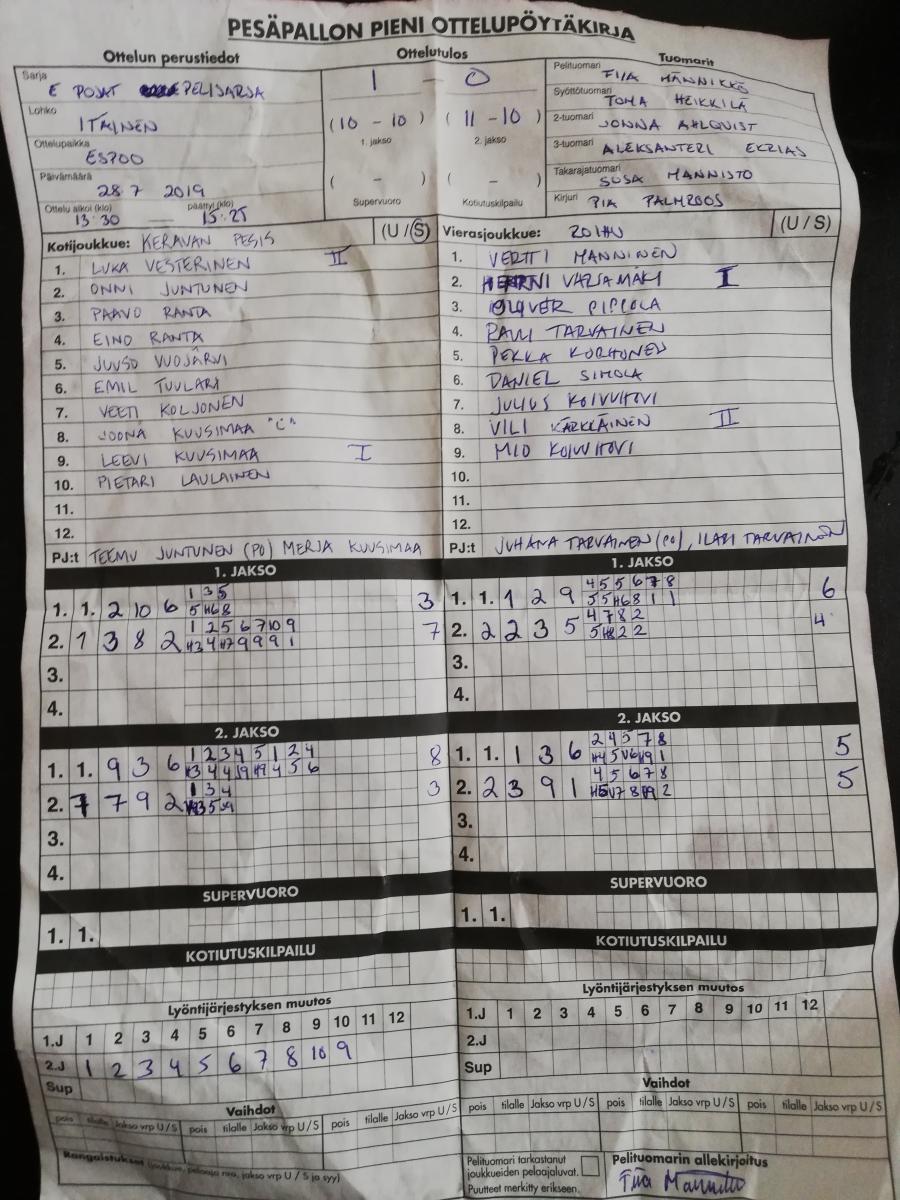 PESÄPALLON PIENI OTTELUPÖYTÄKIRJA
Ottelun perustiedot
Sarja
E POJAT PELISARJA
Lohko
ITÄINEN
Ottelupaikka
ESPOO
Päivämäärä
28.7 2019
Ottelu alkoi (klo) päättyi (klo)
13.30 — 15.25
Ottelutulos
1 — 0
(10 - 10) (11 - 10)
1. jakso 2. jakso
( - ) ( - )
Supervuoro Kotiutuskilpailu
Tuomarit
Pelituomari FIIA MÄNNIKKÖ
Syöttötuomari TOMA HEIKKILÄ
2-tuomari JONNA AHLQVIST
3-tuomari ALEKSANTERI EKRIAS
Takarajatuomari SUSA MANNISTO
Kirjuri PIA PALMROOS
Kotijoukkue: KERAVAN PESIS (U / S)
1. LUKA VESTERINEN II
2. ONNI JUNTUNEN
3. PAAVO RANTA
4. EINO RANTA
5. JUUSO VUOJÄRVI
6. EMIL TUULARI
7. VEETI KOLJONEN
8. JOONA KUUSIMAA "C"
9. LEEVI KUUSIMAA I
10. PIETARI LAULAINEN
11.
12.
PJ:t TEEMU JUNTUNEN (PO) MERJA KUUSIMAA
Vierasjoukkue: ROIHU (U / S)
1. VERTTI MANNINEN
2. VARJAMÄKI I
3. OLIVER PIPPOLA
4. RAULI TARVAINEN
5. PEKKA KORHONEN
6. DANIEL SIMOLA
7. JULIUS KOIVUHOVI
8. VILI KÄRKKÄINEN II
9. MIO KOIVUHOVI
10.
11.
12.
PJ:t JUHANA TARVAINEN (PO), ILARI TARVAINEN
1. JAKSO
1 3 5
1. 1. 2 10 6 5 H6 8 3
1 2 5 6 7 10 9
2. 1 3 8 2 H3 4 H7 9 9 9 1 7
3.
4.
1. JAKSO
4 5 5 6 7 8
1. 1. 1 2 9 5 5 H6 8 1 1 6
4 7 8 2
2. 2 2 3 5 5 H8 2 2 4
3.
4.
2. JAKSO
1 2 3 4 5 1 2 4
1. 1. 9 3 6 8
1 3 4
2. 7 7 9 2 3
3.
4.
2. JAKSO
2 4 5 7 8
1. 1. 1 3 6 H4 5 V6 H9 1 5
4 5 6 7 8
2. 2 3 9 1 H5 V7 8 H9 2 5
3.
4.
SUPERVUORO
1. 1.
SUPERVUORO
1. 1.
KOTIUTUSKILPAILU
KOTIUTUSKILPAILU
Lyöntijärjestyksen muutos
1.J 1 2 3 4 5 6 7 8 9 10 11 12
2.J 1 2 3 4 5 6 7 8 10 9
Sup
Lyöntijärjestyksen muutos
1.J 1 2 3 4 5 6 7 8 9 10 11 12
2.J
Sup
Vaihdot
pois tilalle Jakso vrp U / S pois tilalle Jakso vrp U / S pois tilalle Jakso vrp U / S
Vaihdot
pois tilalle Jakso vrp U / S pois tilalle Jakso vrp U / S pois tilalle Jakso vrp U / S
Rangaistukset (joukkue, pelaaja nro, jakso vrp U / S ja syy)
Pelituomari tarkastanut
joukkueiden pelaajaluvat.
Puutteet merkitty erikseen.
Pelituomarin allekirjoitus
Fiia Mannikko